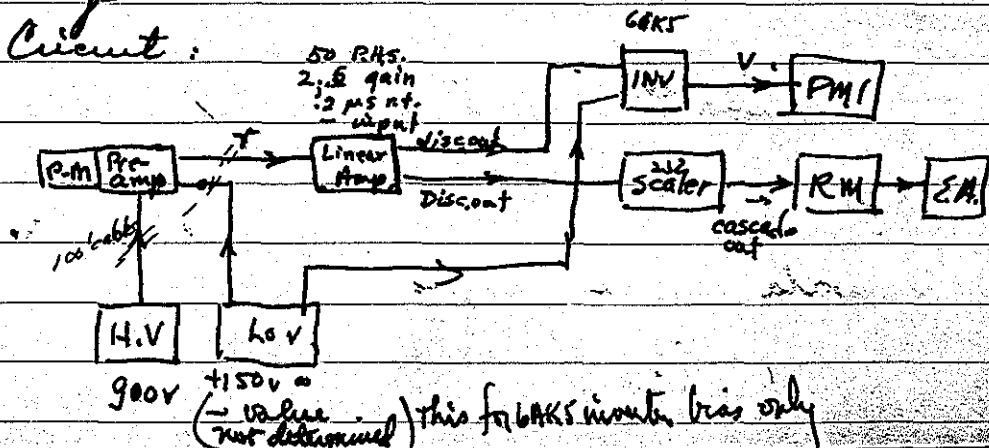 Circuit :
6AK5
50 P.H.S.
2,5 gain
.2 μs nt.
- input
INV
V
PMI
P-M
Pre-
amp
+
Linear
Amp
discout
Disc.out
232
Scaler
cascade
out
RM
E.A.
100' cable
H.V
Lo V
900v
+150v
(- value
not determined)
This for 6AK5 inverter bias only